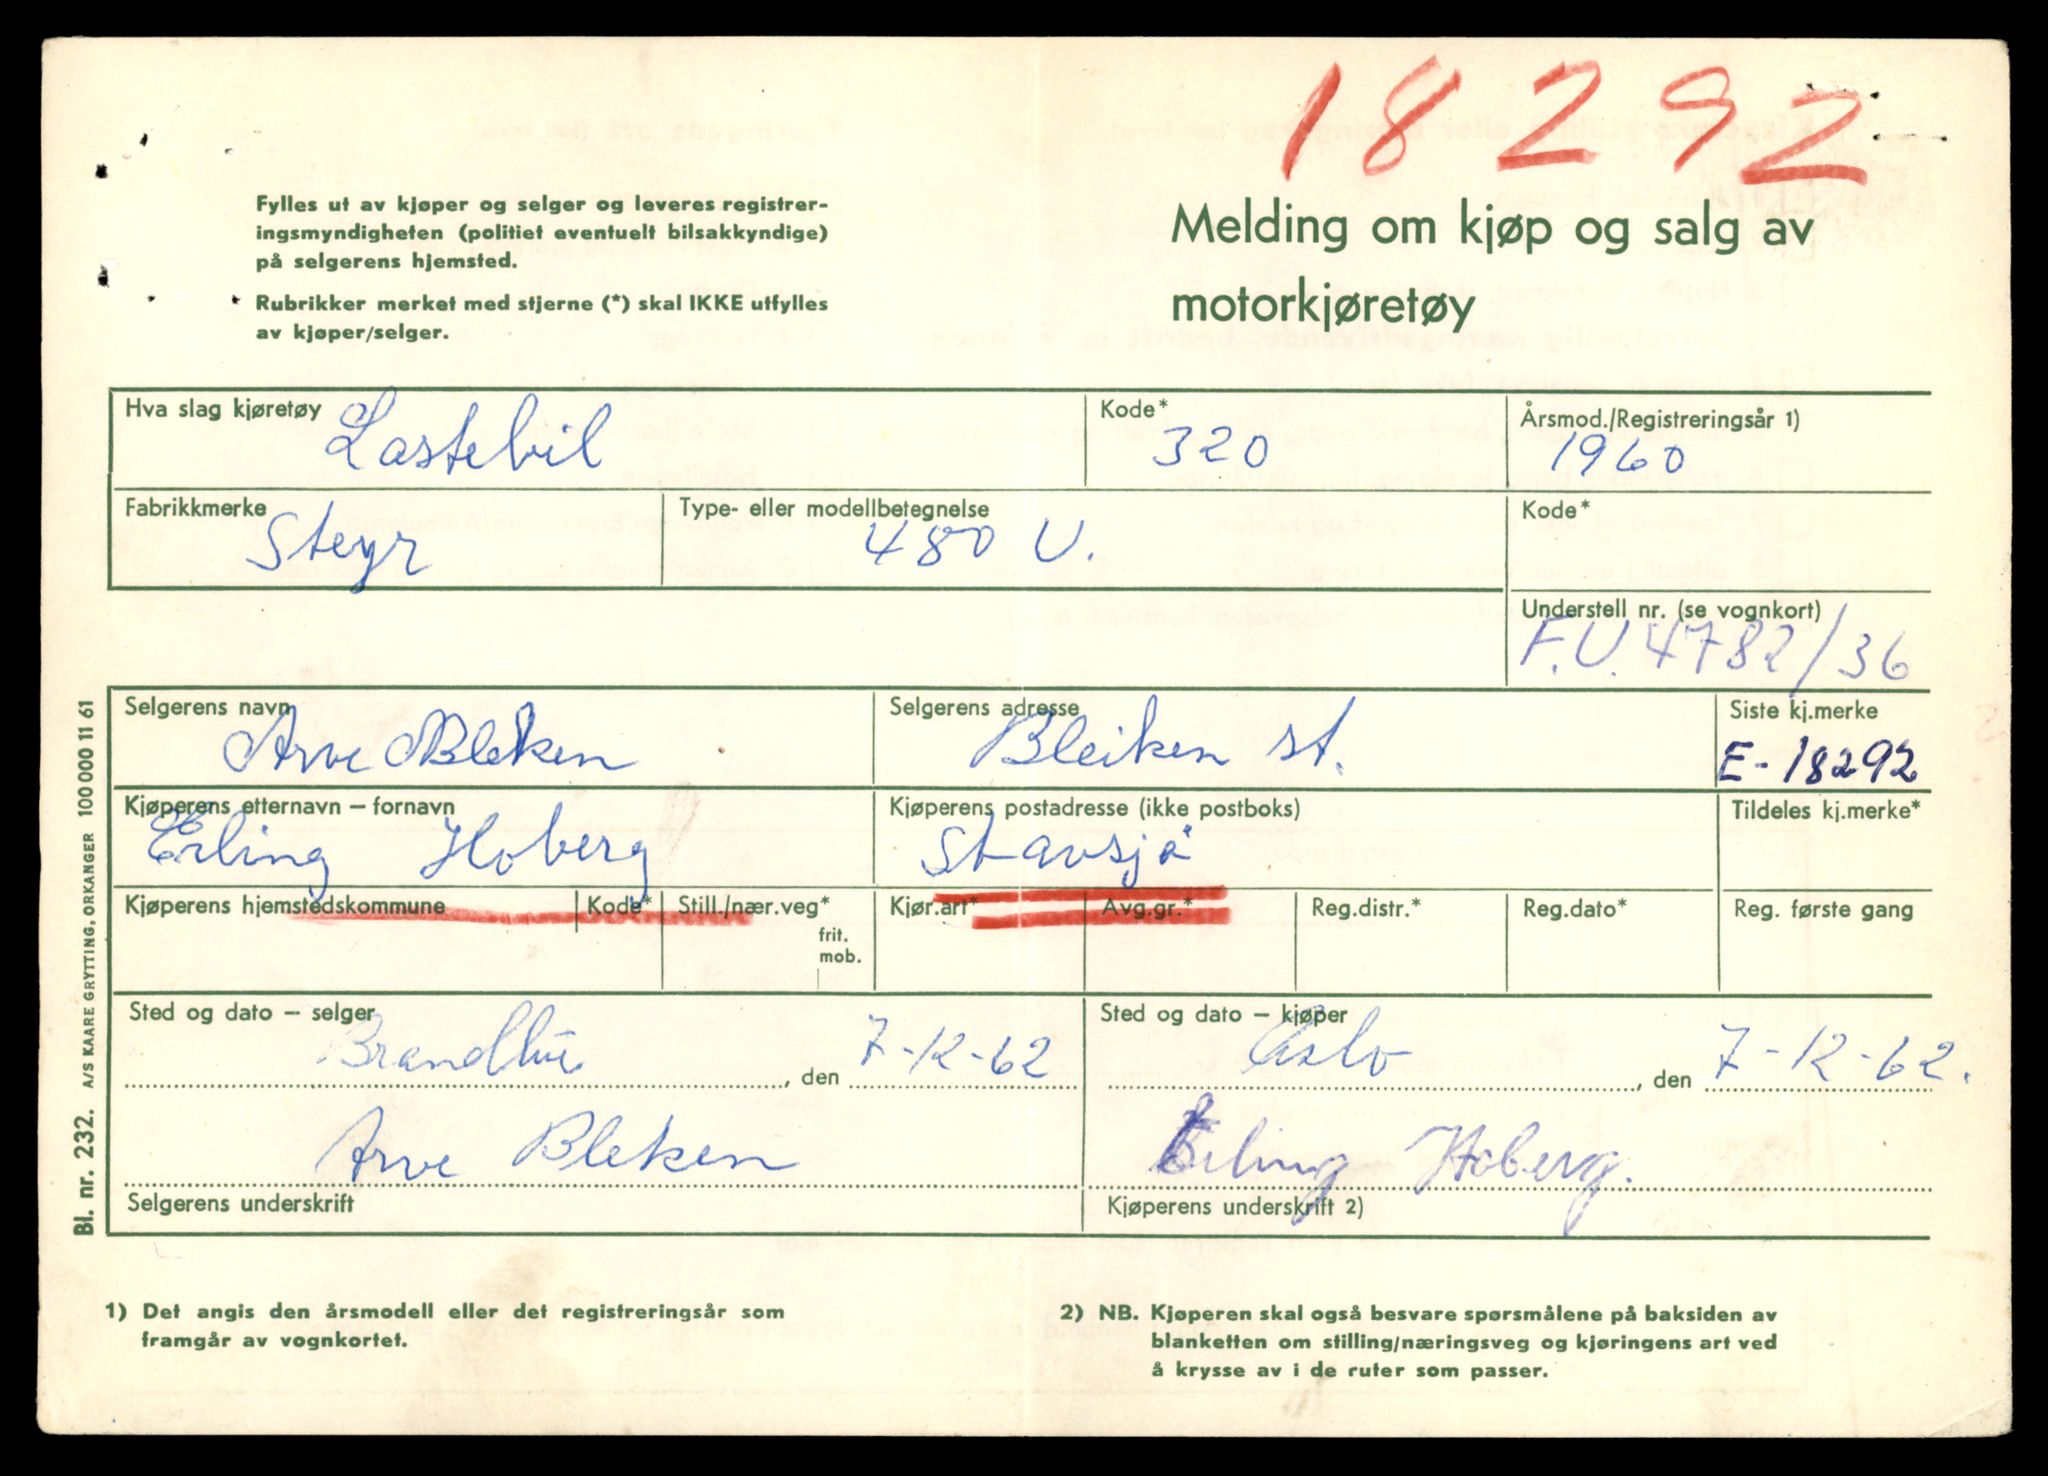 18292
Fylles ut av kjøper og selger og leveres registrer-
ingsmyndigheten (politiet eventuelt bilsakkyndige)
på selgerens hjemsted.
Rubrikker merket med stjerne (*) skal IKKE utfylles
av kjøper/selger.
Melding om kjøp og salg av
motorkjøretøy
Hva slag kjøretøy Lastebil
Kode* 320
Årsmod./Registreringsår 1) 1960
Fabrikkmerke Steyr
Type- eller modellbetegnelse 480 U.
Kode*
Understell nr. (se vognkort)
F.U. 4782/36
Selgerens navn Arve Bleken
Selgerens adresse Bleiken st.
Siste kj.merke
E-18292
Kjøperens etternavn – fornavn
Erling Hoberg
Kjøperens postadresse (ikke postboks)
Stavsjø
Tildeles kj.merke*
Kjøperens hjemstedskommune
Kode*
Still./nær.veg*
frit.
mob.
Kjør.art*
Avg.gr.*
Reg.distr.*
Reg.dato*
Reg. første gang
Sted og dato – selger
Brandbu , den 7-12-62
Sted og dato – kjøper
Oslo , den 7-12-62.
Arve Bleken
Selgerens underskrift
Erling Hoberg.
Kjøperens underskrift 2)
1) Det angis den årsmodell eller det registreringsår som
framgår av vognkortet.
2) NB. Kjøperen skal også besvare spørsmålene på baksiden av
blanketten om stilling/næringsveg og kjøringens art ved
å krysse av i de ruter som passer.
Bl. nr. 232. A/S KAARE GRYTTING, ORKANGER 100 000 11 61